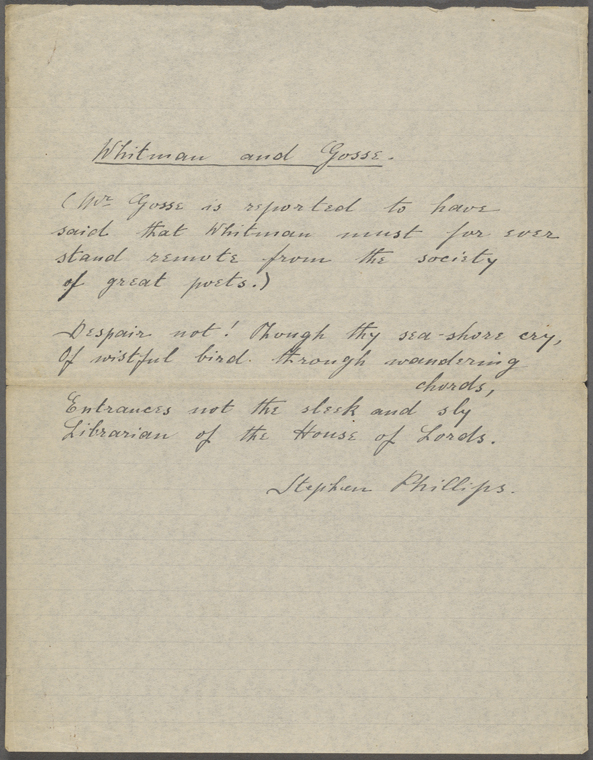 Whitman and Gosse.
(Mr Gosse is reported to have
said that Whitman must for ever
stand remote from the society
of great poets.)
Despair not! Though thy sea-shore cry,
Of wistful bird. through wandering
chords,
Entrances not the sleek and sly
Librarian of the House of Lords.
Stephen Phillips.